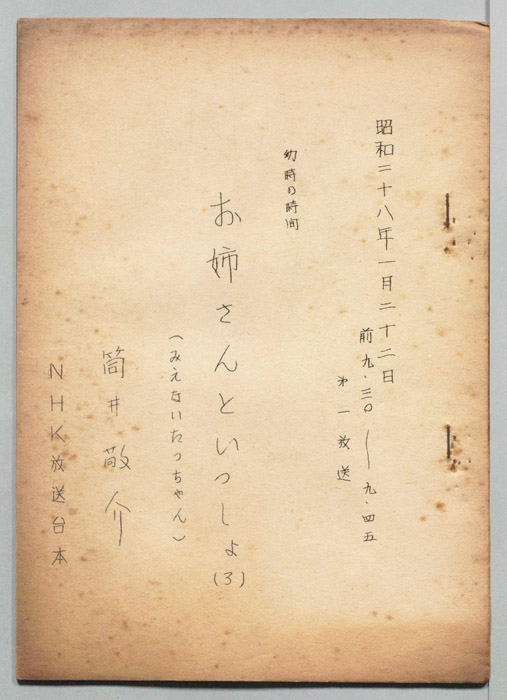 昭和二十八年一月二十二日
前九・三〇―九・四五
第一放送
幼時の時間
お姉さんといっしょ(3)
(みえないたっちゃん)
筒井敬介
NHK放送台本